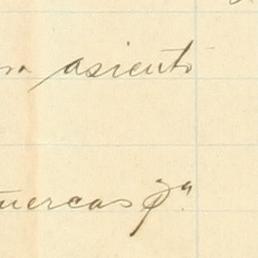 asiento
tuercas pª